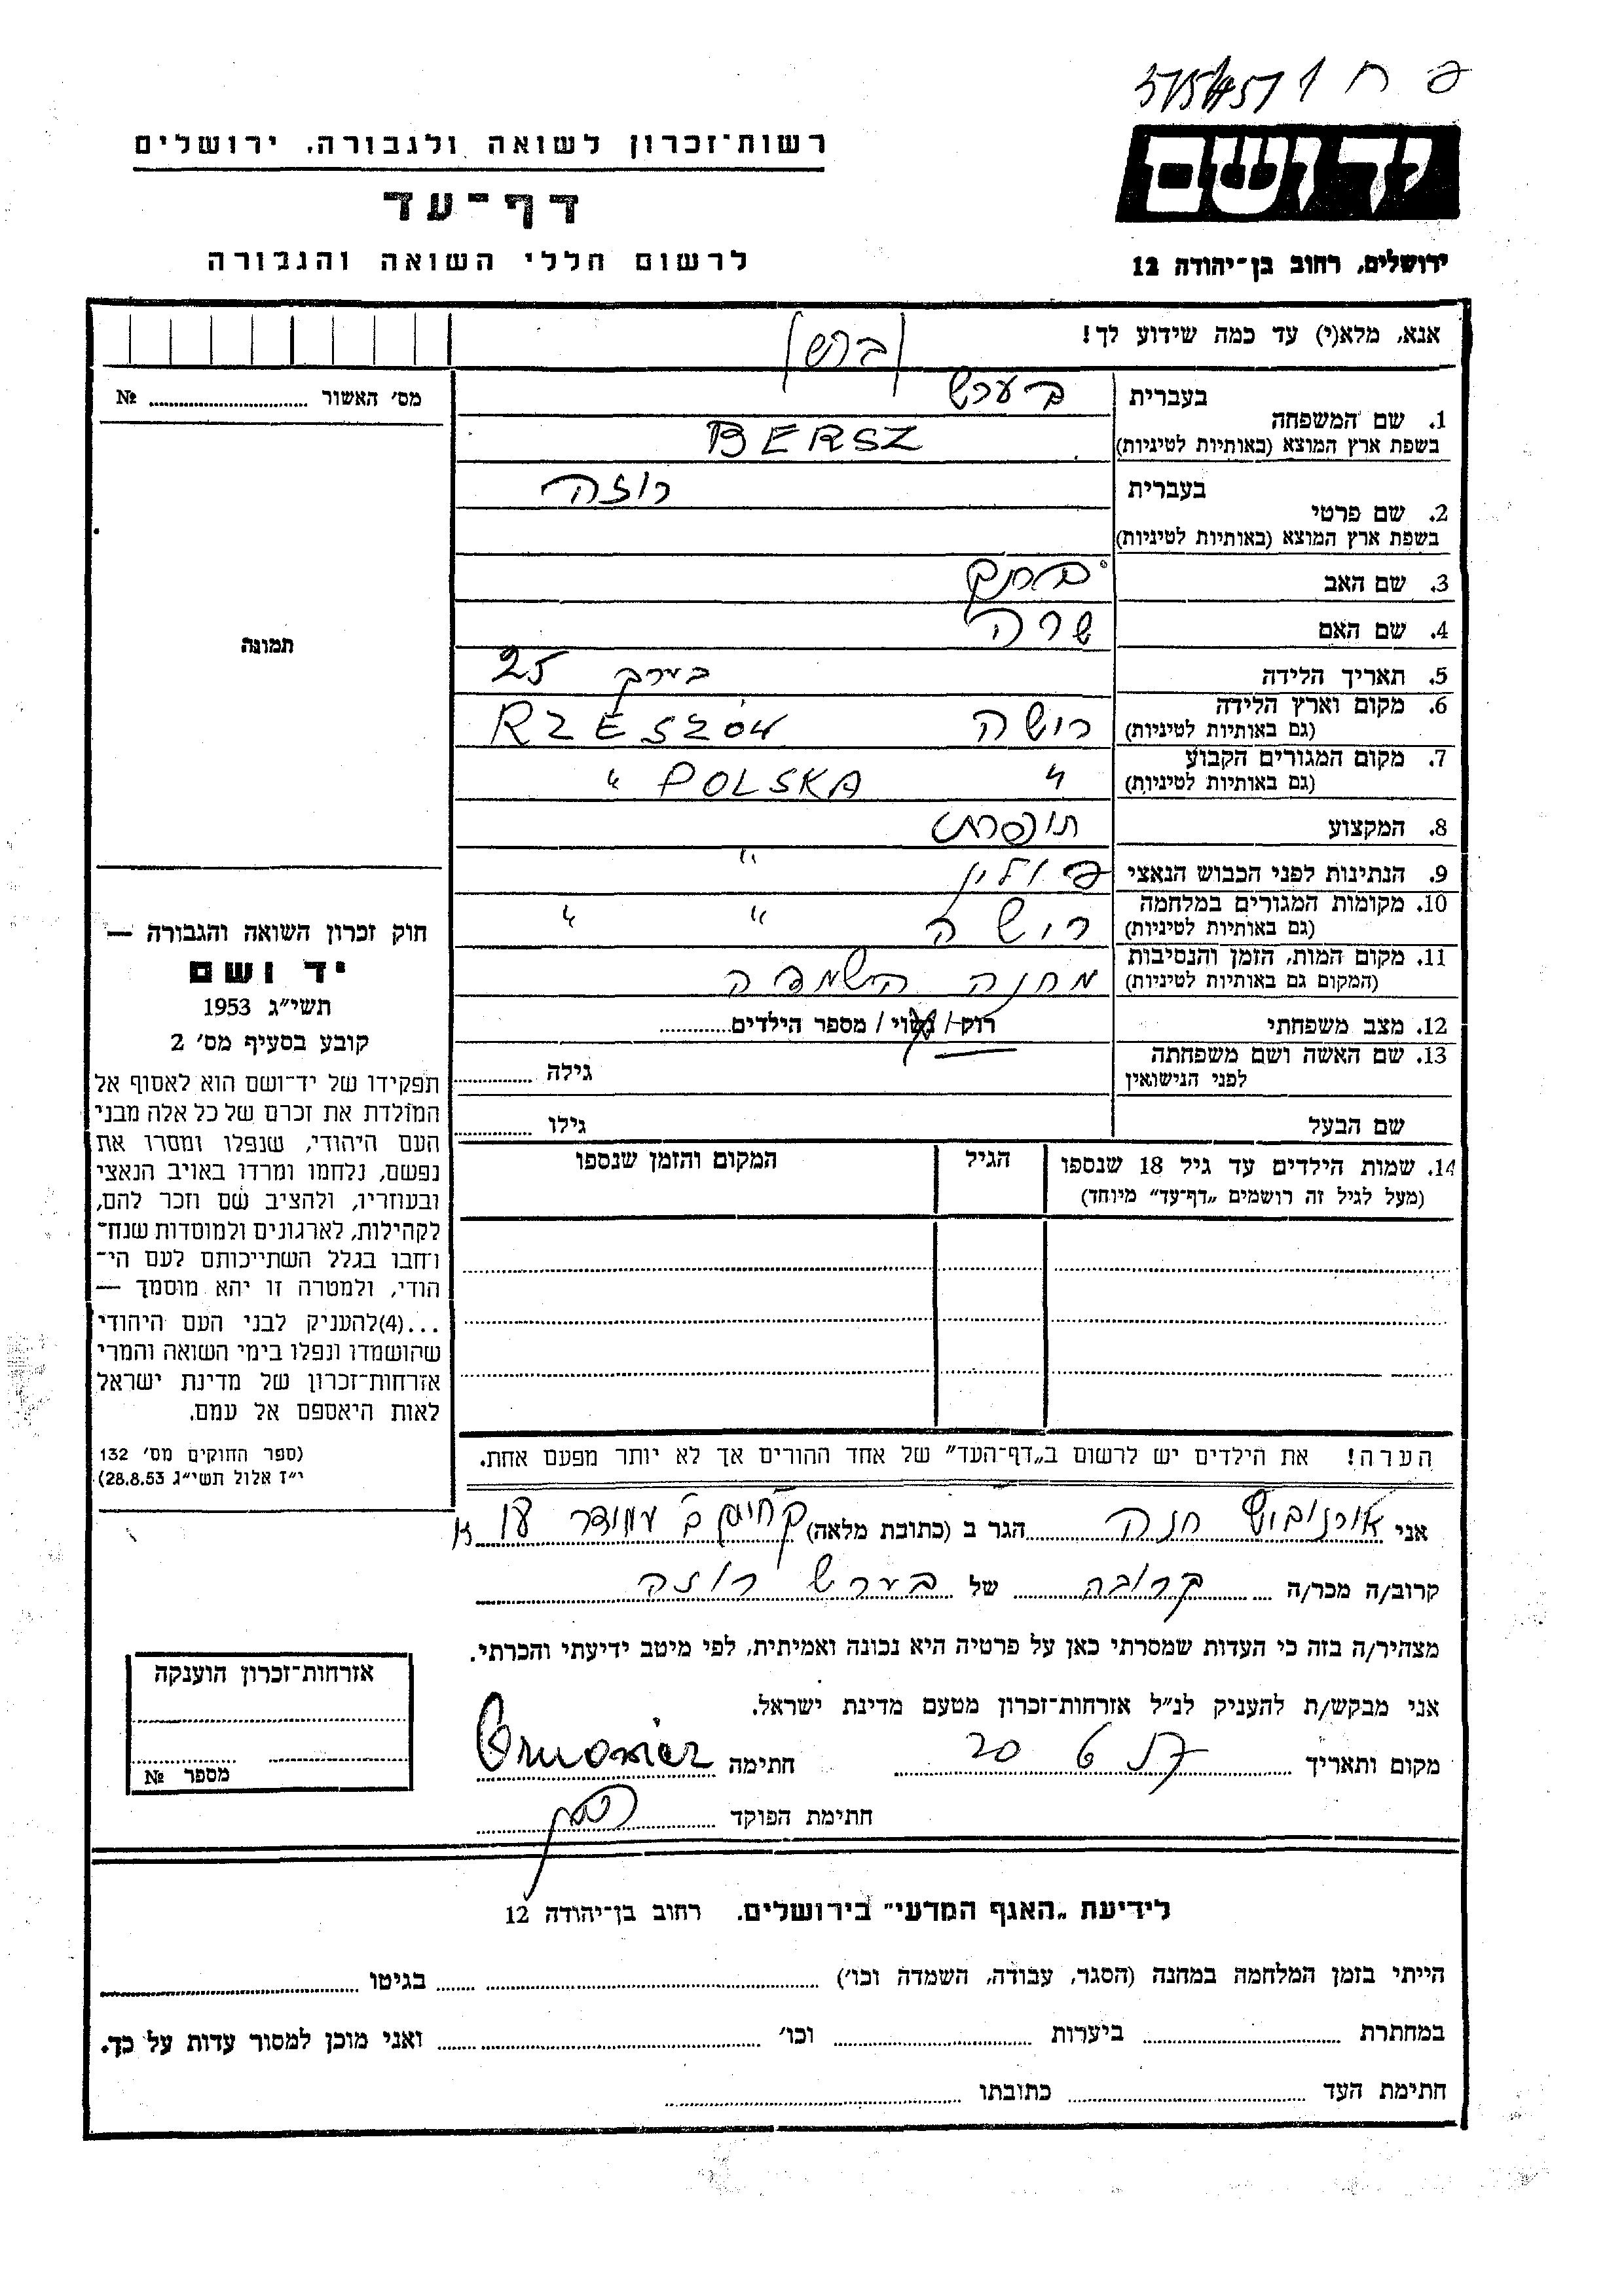 פ ח 1
רשות־זכרון לשואה ולגבורה, ירושלים
יד ושם
דף־עד
לרשום חללי השואה והגבורה
ירושלים, רחוב בן־יהודה 12
אנא, מלא(י) עד כמה שידוע לך!
(ברש)
מס' האשור № ..........
1. שם המשפחה
בעברית בערש
בשפת ארץ המוצא (באותיות לטיניות) BERSZ
2. שם פרטי
בעברית רוזה
בשפת ארץ המוצא (באותיות לטיניות)
3. שם האב
4. שם האם שרה
תמונה
5. תאריך הלידה בערך 25
6. מקום וארץ הלידה (גם באותיות לטיניות) רישה RZESZÓW
7. מקום המגורים הקבוע (גם באותיות לטיניות) " POLSKA "
8. המקצוע תופרת
9. הנתינות לפני הכבוש הנאצי פולין "
10. מקומות המגורים במלחמה (גם באותיות לטיניות) רישה " "
11. מקום המות, הזמן והנסיבות (המקום גם באותיות לטיניות) מחנה השמדה
12. מצב משפחתי רווק / נשוי / מספר הילדים..........
13. שם האשה ושם משפחתה לפני הנישואין גילה ..........
שם הבעל גילו ..........
14. שמות הילדים עד גיל 18 שנספו (מעל לגיל זה רושמים „דף־עד” מיוחד)
הגיל
המקום והזמן שנספו
חוק זכרון השואה והגבורה —
יד ושם
תשי"ג 1953
קובע בסעיף מס' 2
תפקידו של יד־ושם הוא לאסוף אל
המולדת את זכרם של כל אלה מבני
העם היהודי, שנפלו ומסרו את
נפשם, נלחמו ומרדו באויב הנאצי
ובעוזריו, ולהציב שם וזכר להם,
לקהילות, לארגונים ולמוסדות שנח־
רחבו בגלל השתייכותם לעם הי־
הודי, ולמטרה זו יהא מוסמך —
...(4)להעניק לבני העם היהודי
שהושמדו ונפלו בימי השואה והמרי
אזרחות־זכרון של מדינת ישראל
לאות היאספם אל עמם.
(ספר החוקים מס' 132
י"ז אלול תשי"ג 28.8.53)
הערה! את הילדים יש לרשום ב„דף־העד” של אחד ההורים אך לא יותר מפעם אחת.
אני חנה הגר ב (כתובת מלאה)
קרוב/ה מכר/ה קרובה של בערש רוזה
מצהיר/ה בזה כי העדות שמסרתי כאן על פרטיה היא נכונה ואמיתית, לפי מיטב ידיעתי והכרתי.
אני מבקש/ת להעניק לנ"ל אזרחות־זכרון מטעם מדינת ישראל.
מקום ותאריך חתימה
חתימת הפוקד
אזרחות־זכרון הוענקה
מספר №
לידיעת „האגף המדעי” בירושלים. רחוב בן־יהודה 12
הייתי בזמן המלחמה במחנה (הסגר, עבודה, השמדה וכו') .......... בגיטו ..........
במחתרת .......... ביערות .......... וכו' .......... ואני מוכן למסור עדות על כך.
חתימת העד .......... כתובתו ..........